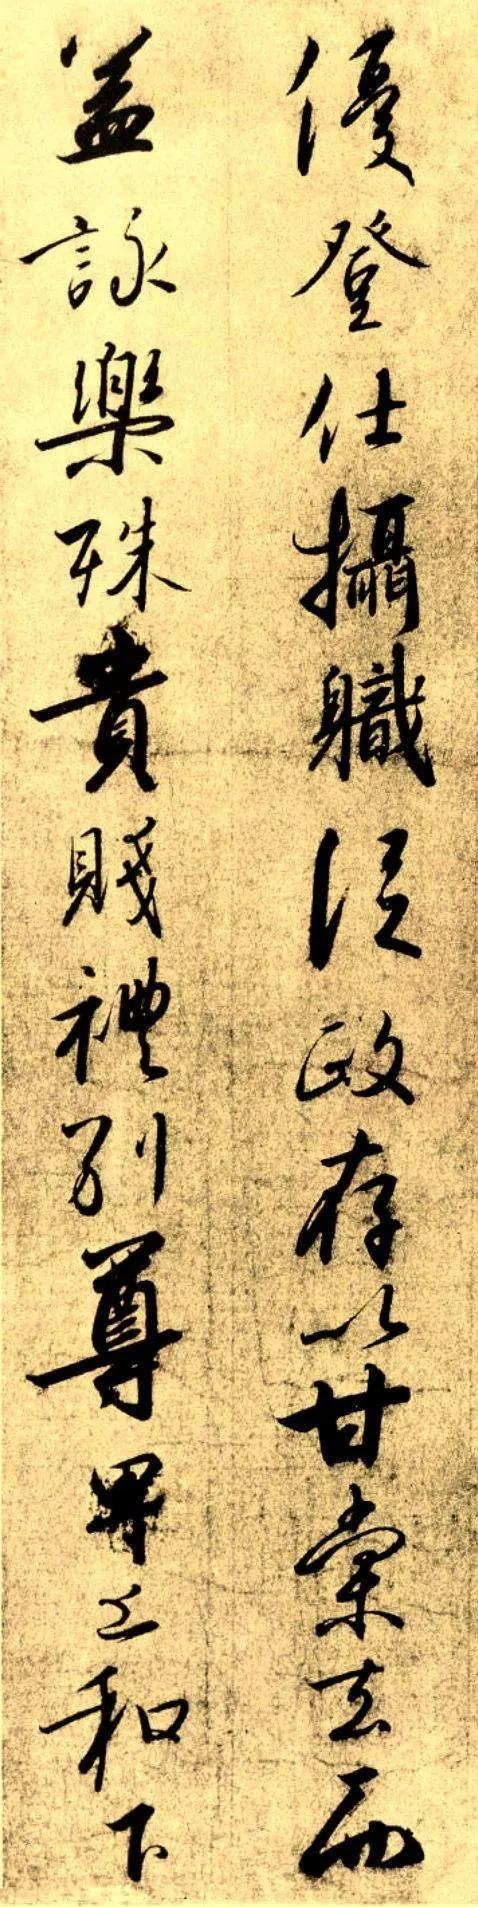 優登仕攝職從政存以甘棠去而
益詠樂殊貴賤禮別尊卑上和下